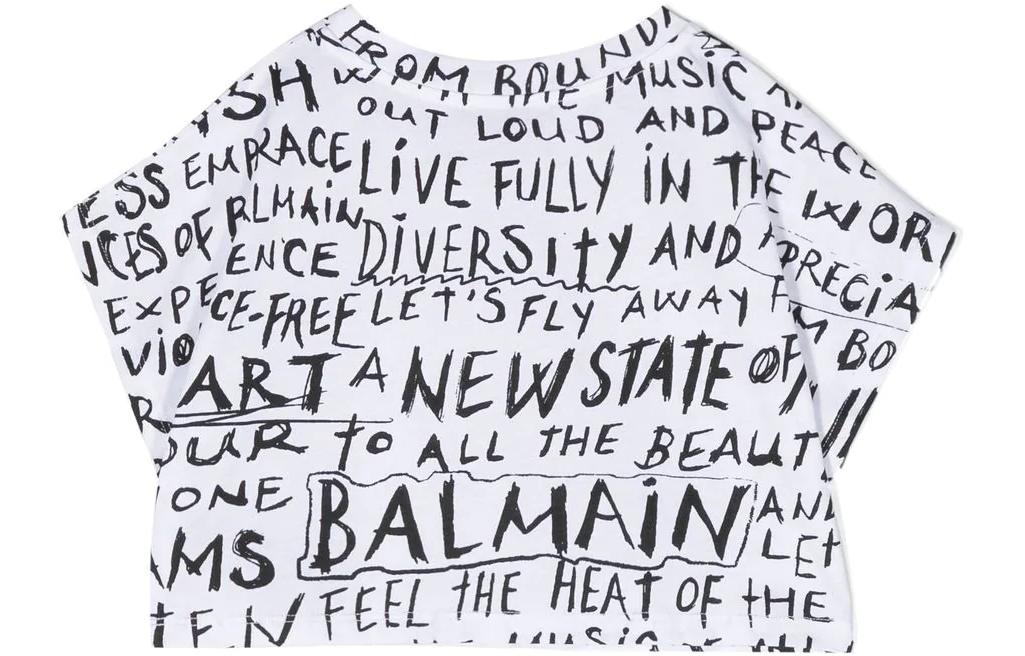 FROM BOUND
SH MUSIC
OUT LOUD AND PEACE
ESS EMPRACE LiVE FULLY iN THE WOR
NCES OF BLMAiN
ENCE DiVERSity AND PRECiA
EXPE CE-FREE LET'S FLY AWAY
ViO ART A NEW STATE OF M BO
OUR to ALL THE BEAUT
ONE BALMAiN AND
AMS LEt
FEEL tHE HEAT OF tHE